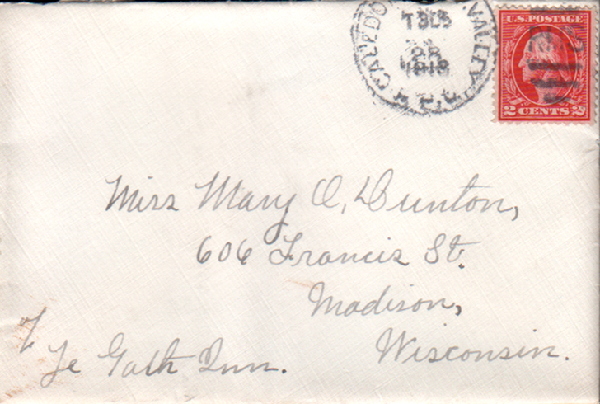 CALEDO VALLEY
1918
U.S. POSTAGE
2 CENTS 2
Miss Mary O. Dunton,
606 Francis St.
Madison,
Wisconsin.
℅
Ye Gath Inn.